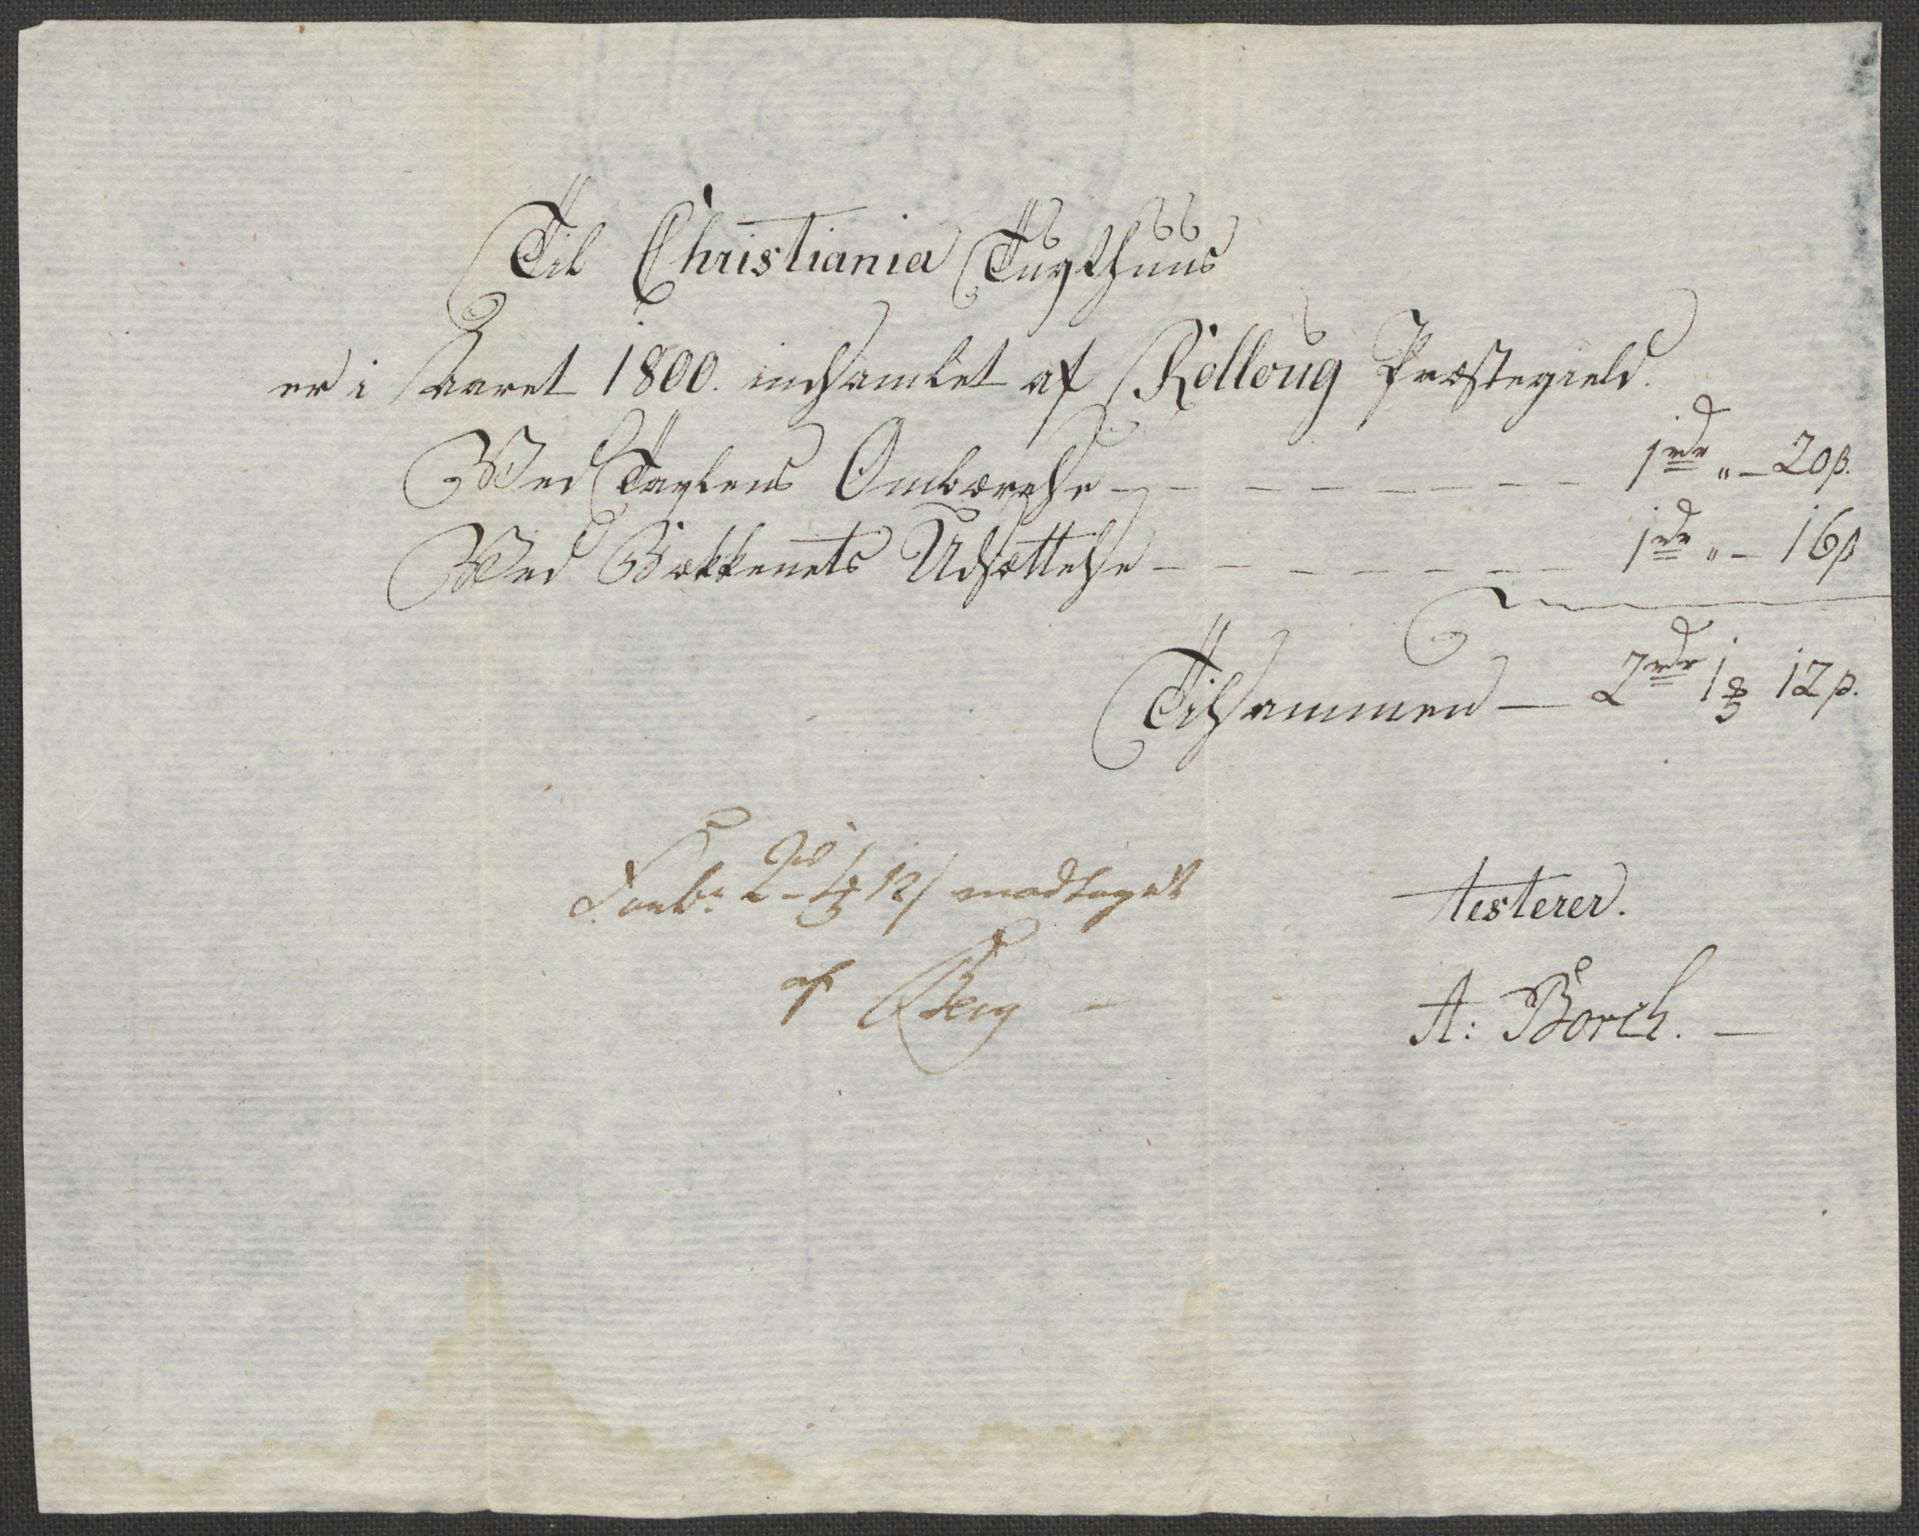 Til Christiania Tugthuus
er i Aaret 1800. indsamlet af Rolloug Præstegield.
Wed Tavlens Ombærelse - - - - - - - - 1 rdr „ - 20 ß.
Wed Bækkenets Udsættelse - - - - - - - 1 rdr „ - 16 ß
Tilsammen - 2 rdr 1 ℔ 12 ß.
2 rd 1 ℔ 12 ß modtaget
af Berg -
testerer.
A: Borch. -